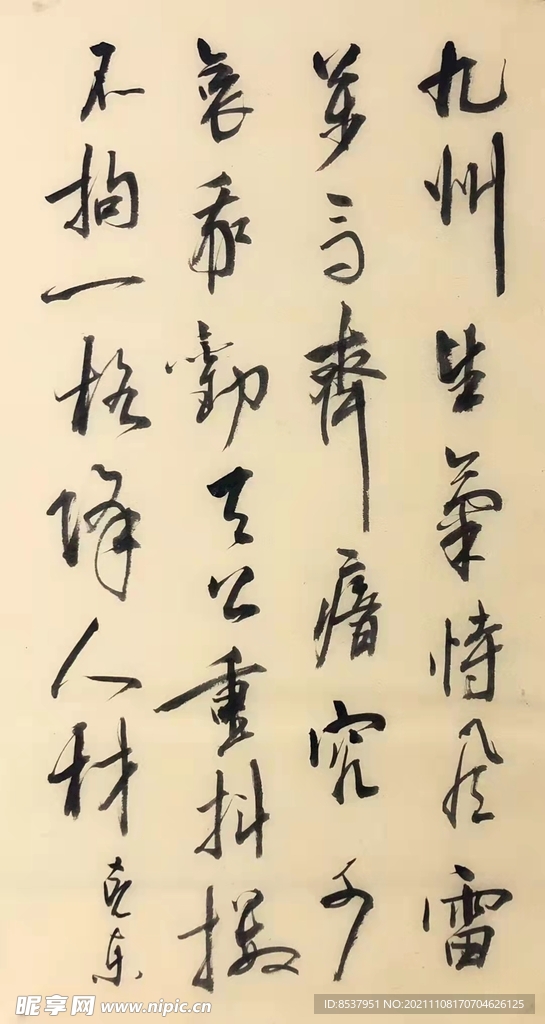 九州生氣恃风雷
萬马齊瘖究可
哀我勸天公重抖擞
不拘一格降人材
克东
昵享网 www.nipic.cn
ID:8537951 NO:20211108170704626125